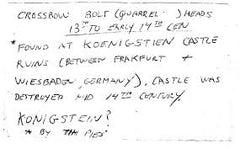 CROSSBOW BOLT (QUARREL) HEADS
13TH TO EARLY 14TH CEN.
*FOUND AT KOENIGSTIEN CASTLE
RUINS (BETWEEN FRAKFURT +
WIESBADEN, GERMANY), CASTLE WAS
DESTROYED MID 14TH CENTURY.
KONIGSTEIN?
* BY TIM PIES